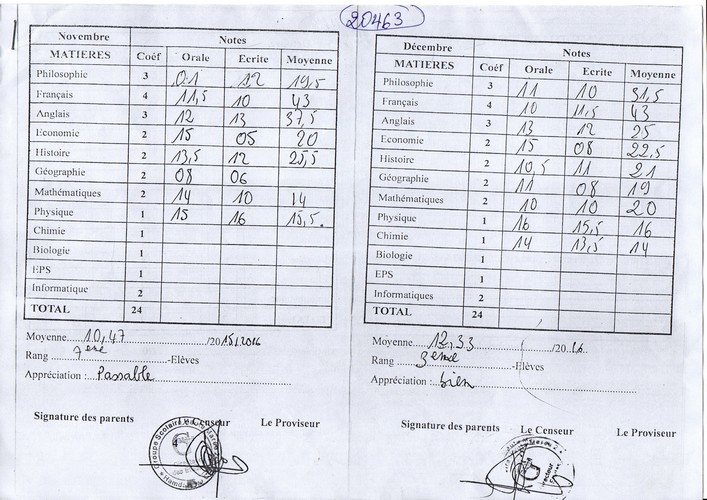 20463
Novembre Notes
MATIERES Coéf Orale Ecrite Moyenne
Philosophie 3 01 12 19,5
Français 4 11,5 10 43
Anglais 3 12 13 37,5
Economie 2 15 05 20
Histoire 2 13,5 12 25,5
Géographie 2 08 06
Mathématiques 2 14 10 14
Physique 1 15 16 15,5.
Chimie 1
Biologie 1
EPS 1
Informatiques 2
TOTAL 24
Moyenne....10,47..../2015/2016
Rang ....7ere....-Elèves
Appréciation :...Passable
Signature des parents Le Censeur Le Proviseur
Groupe Scolaire
Décembre Notes
MATIERES Coéf Orale Ecrite Moyenne
Philosophie 3 11 10 31,5
Français 4 10 11,5 43
Anglais 3 13 12 25
Economie 2 15 08 22,5
Histoire 2 10,5 11 21
Géographie 2 11 08 19
Mathématiques 2 10 10 20
Physique 1 16 15,5 16
Chimie 1 14 13,5 14
Biologie 1
EPS 1
Informatiques 2
TOTAL 24
Moyenne....12,33..../20..16..
Rang ....3eme....-Elèves
Appréciation :..bien
Signature des parents Le Censeur Le Proviseur